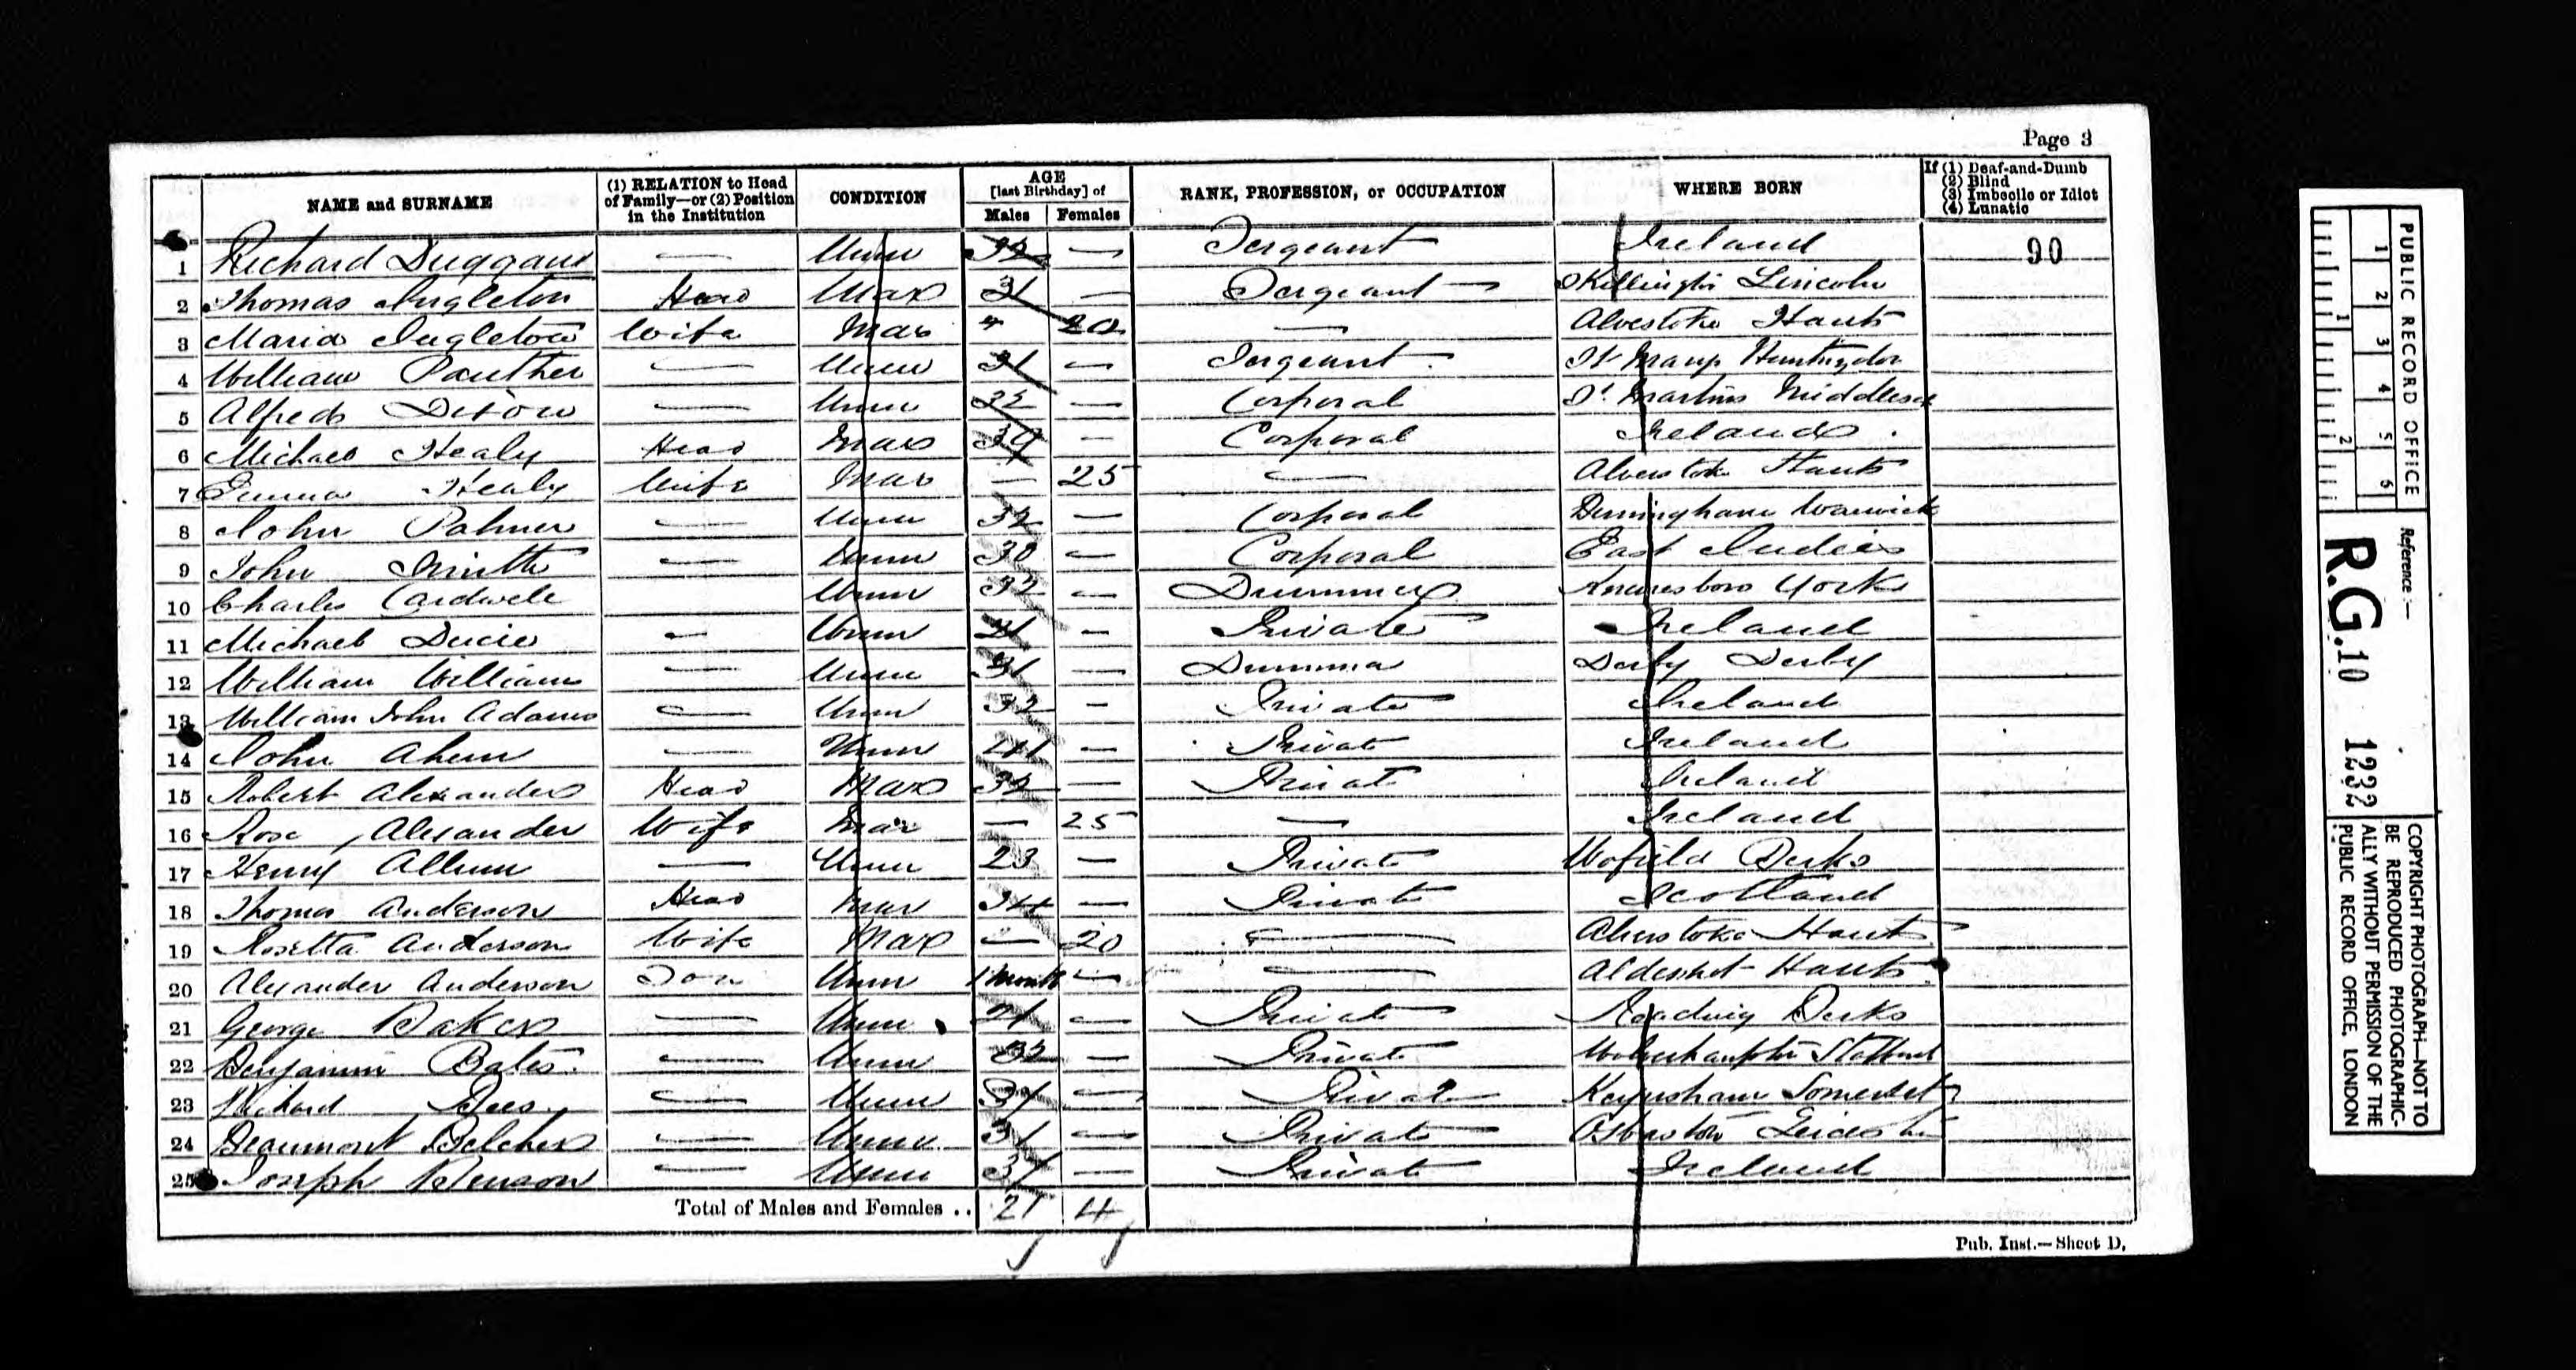 Page 3
NAME and SURNAME | (1) RELATION to Head of Family—or (2) Position in the Institution | CONDITION | AGE [last Birthday] of Males | Females | RANK, PROFESSION, or OCCUPATION | WHERE BORN | If (1) Deaf-and-Dumb (2) Blind (3) Imbecile or Idiot (4) Lunatic
1 Richard Duggan — Unm — Sergeant Ireland 90
2 Thomas Ingleton Head Mar 31 — Sergeant Lincoln
3 Maria Ingleton Wife Mar 20 — Alverstoke Hants
4 William Panther — Unm 31 — Sergeant St Marys Huntingdon
5 Alfred Dixon — Unm 32 — Corporal St Martins Middlesex
6 Michael Healy Head Mar 39 — Corporal Ireland
7 Emma Healy Wife Mar — 25 — Alverstoke Hants
8 John Palmer — Unm 32 — Corporal Birmingham Warwick
9 John Smith — Unm 30 — Corporal East Indies
10 Charles Cardwell Unm 32 — Drummer Knaresboro York
11 Michael — Unm 21 — Private Ireland
12 William Williams — Unm 31 — Drummer Derby Derby
13 William John Adams — Unm 32 — Private Ireland
14 John Ahern — Unm 41 — Private Ireland
15 Robert Alexander Head Mar 32 — Private Ireland
16 Rose Alexander Wife Mar — 25 — Ireland
17 Henry Allum — Unm 23 — Private Berks
18 Thomas Anderson Head Mar 34 — Private Scotland
19 Rosetta Anderson Wife Mar — 20 — Alverstoke Hants
20 Alexander Anderson Son Unm 1 Month — — Aldershot Hants
21 George Baker — Unm 21 — Private Reading Berks
22 Benjamin Bates — Unm 32 — Private Wolverhampton Stafford
23 Richard — Unm — Private Keynsham Somerset
24 Beaumont Belcher — Unm 31 — Private Osbaston Leicester
25 Joseph Benson — Unm 37 — Private Ireland
Total of Males and Females .. 21 4
Pub. Inst.—Sheet D.
PUBLIC RECORD OFFICE
1 2 3 4 5 6
1 2
Reference :—
R.G.10 1232
COPYRIGHT PHOTOGRAPH—NOT TO
BE REPRODUCED PHOTOGRAPHIC-
ALLY WITHOUT PERMISSION OF THE
PUBLIC RECORD OFFICE, LONDON